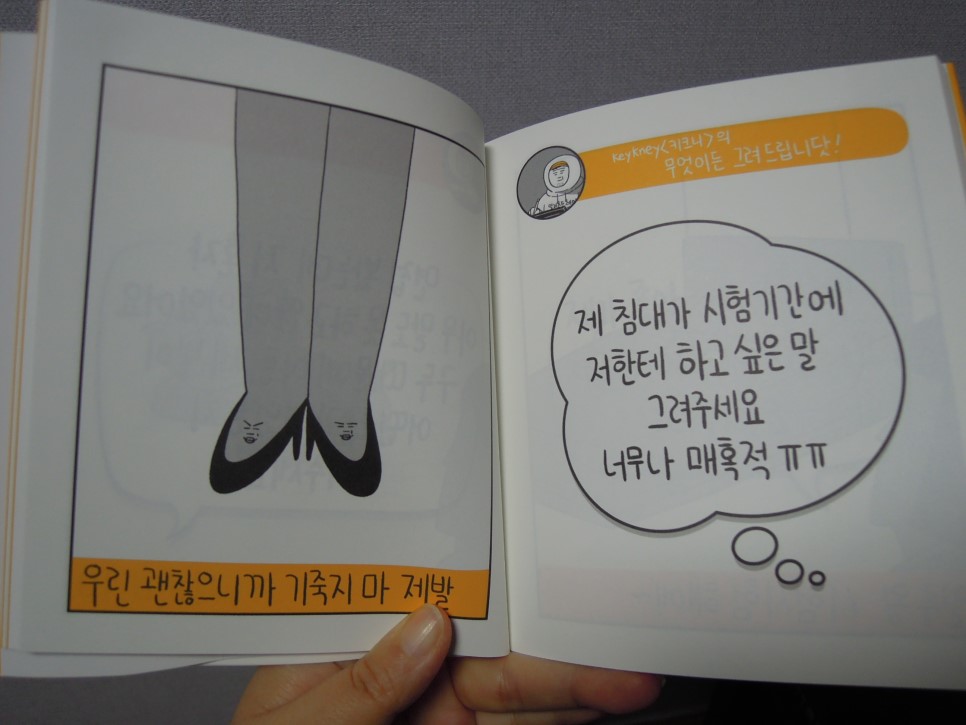 우린 괜찮으니까 기죽지 마 제발
keykney<키크니>의
무엇이든 그려드립니닷!
제 침대가 시험기간에
저한테 하고 싶은 말
그려주세요
너무나 매혹적 ㅠㅠ